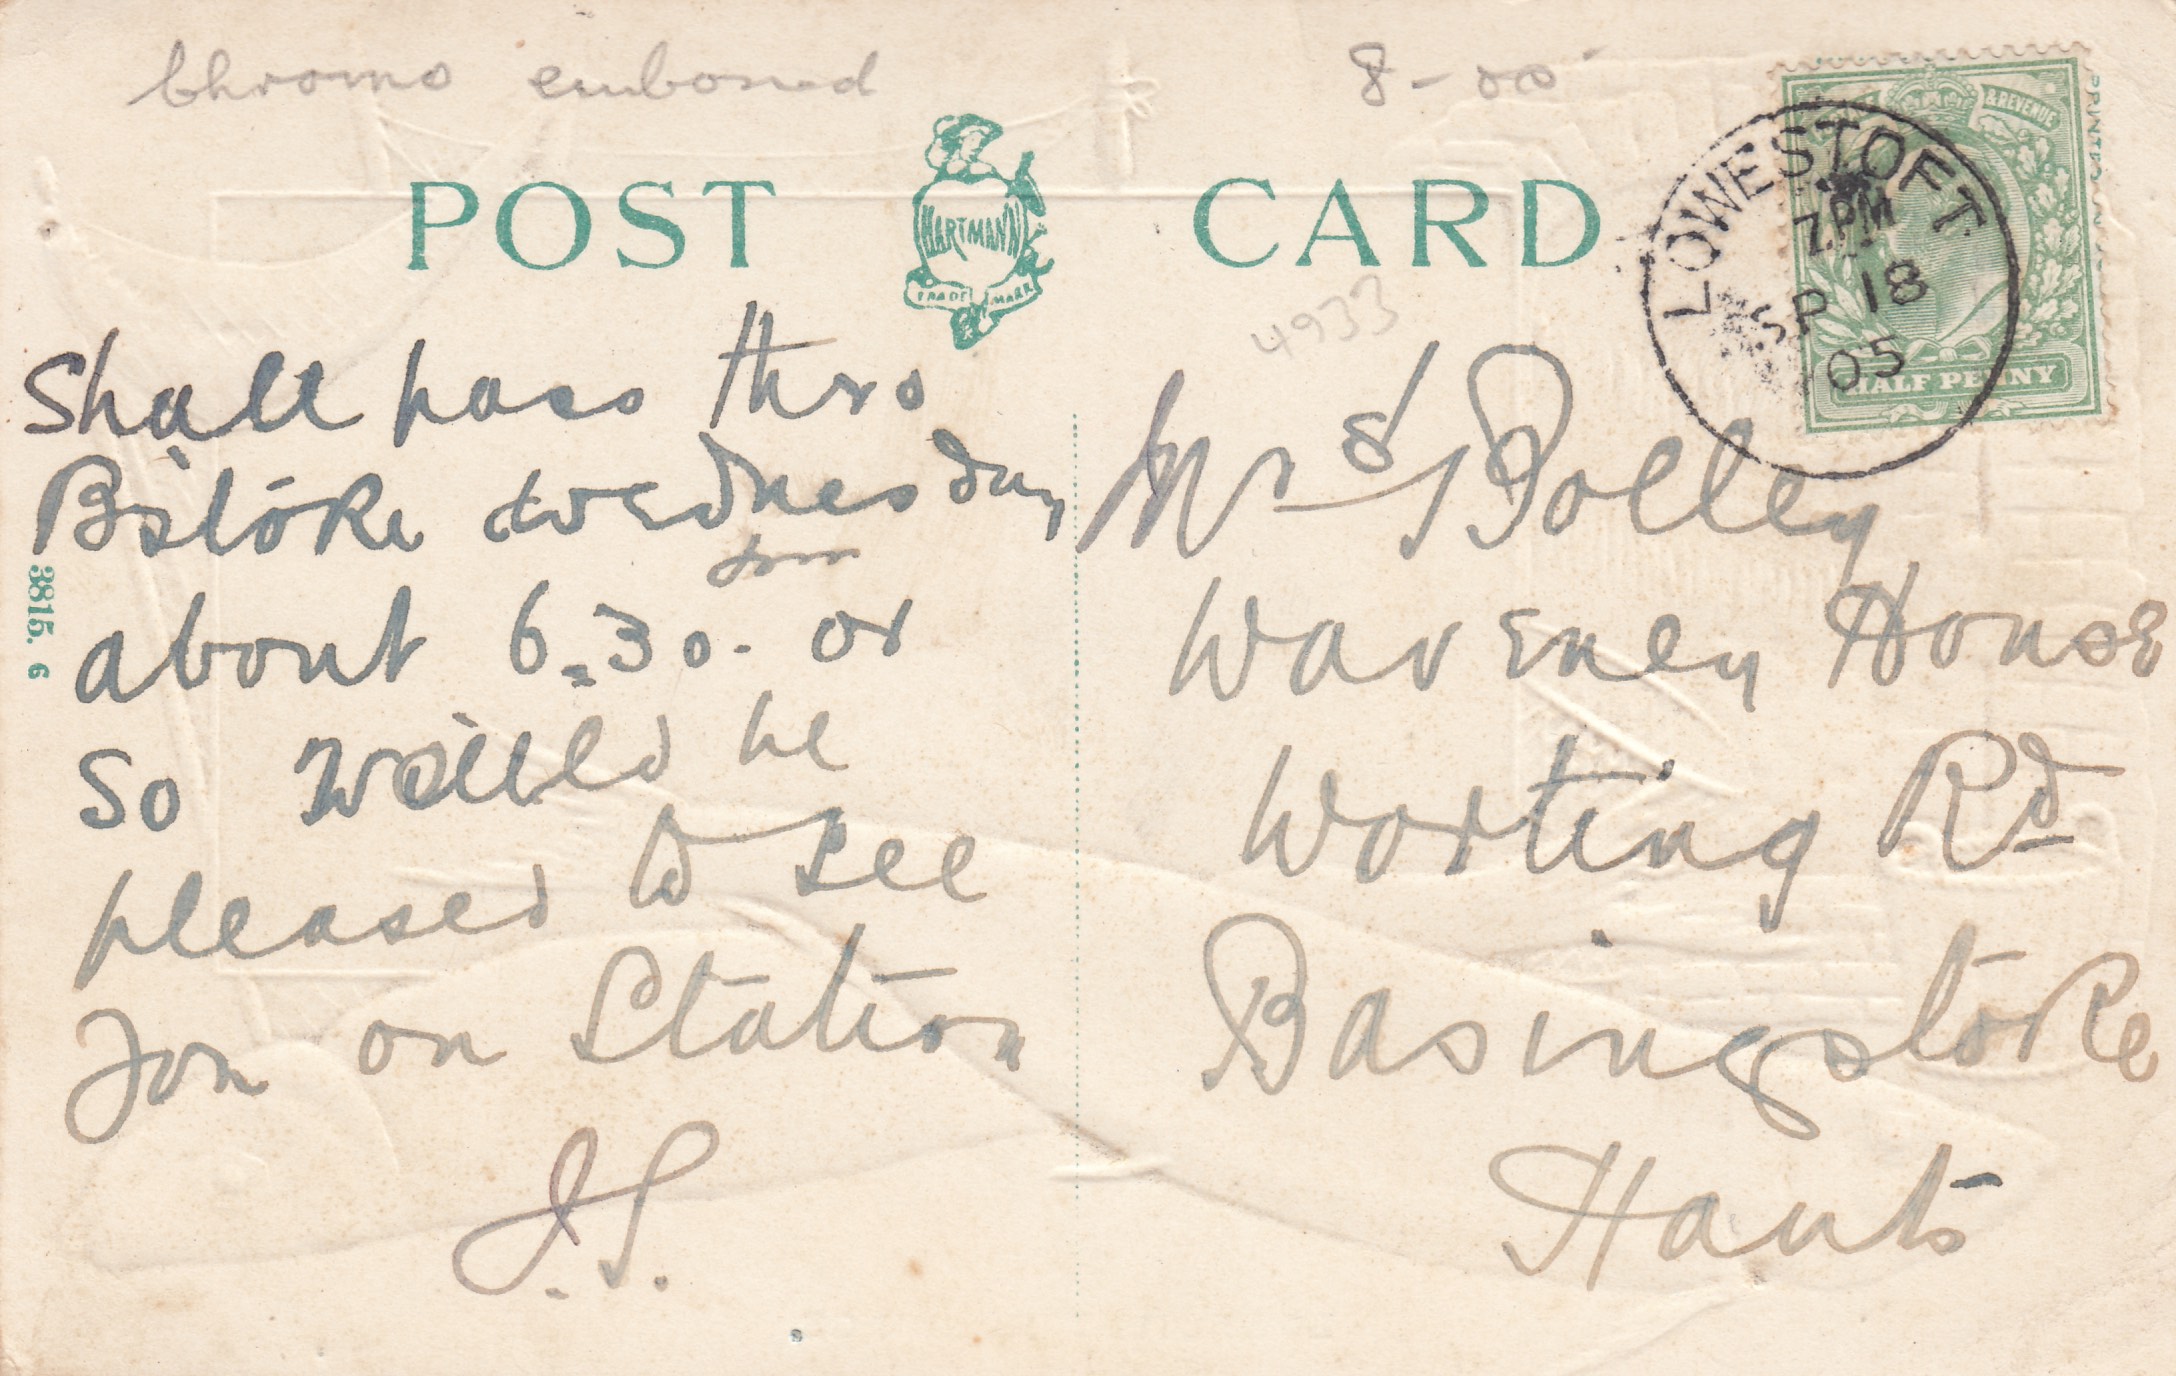 chromo embossed 8-00
POST CARD
HARTMANN
TRADE MARK
4933
& REVENUE
HALF PENNY
LOWESTOFT
7.PM
SP 18
05
3815. 6
Shall pass thro
B'stoke wednesday
about 6.30. or
so would be
pleased to see
you on Station
J.S.
Mrs Bolley
Waveney House
Worting Rd
Basingstoke
Hants